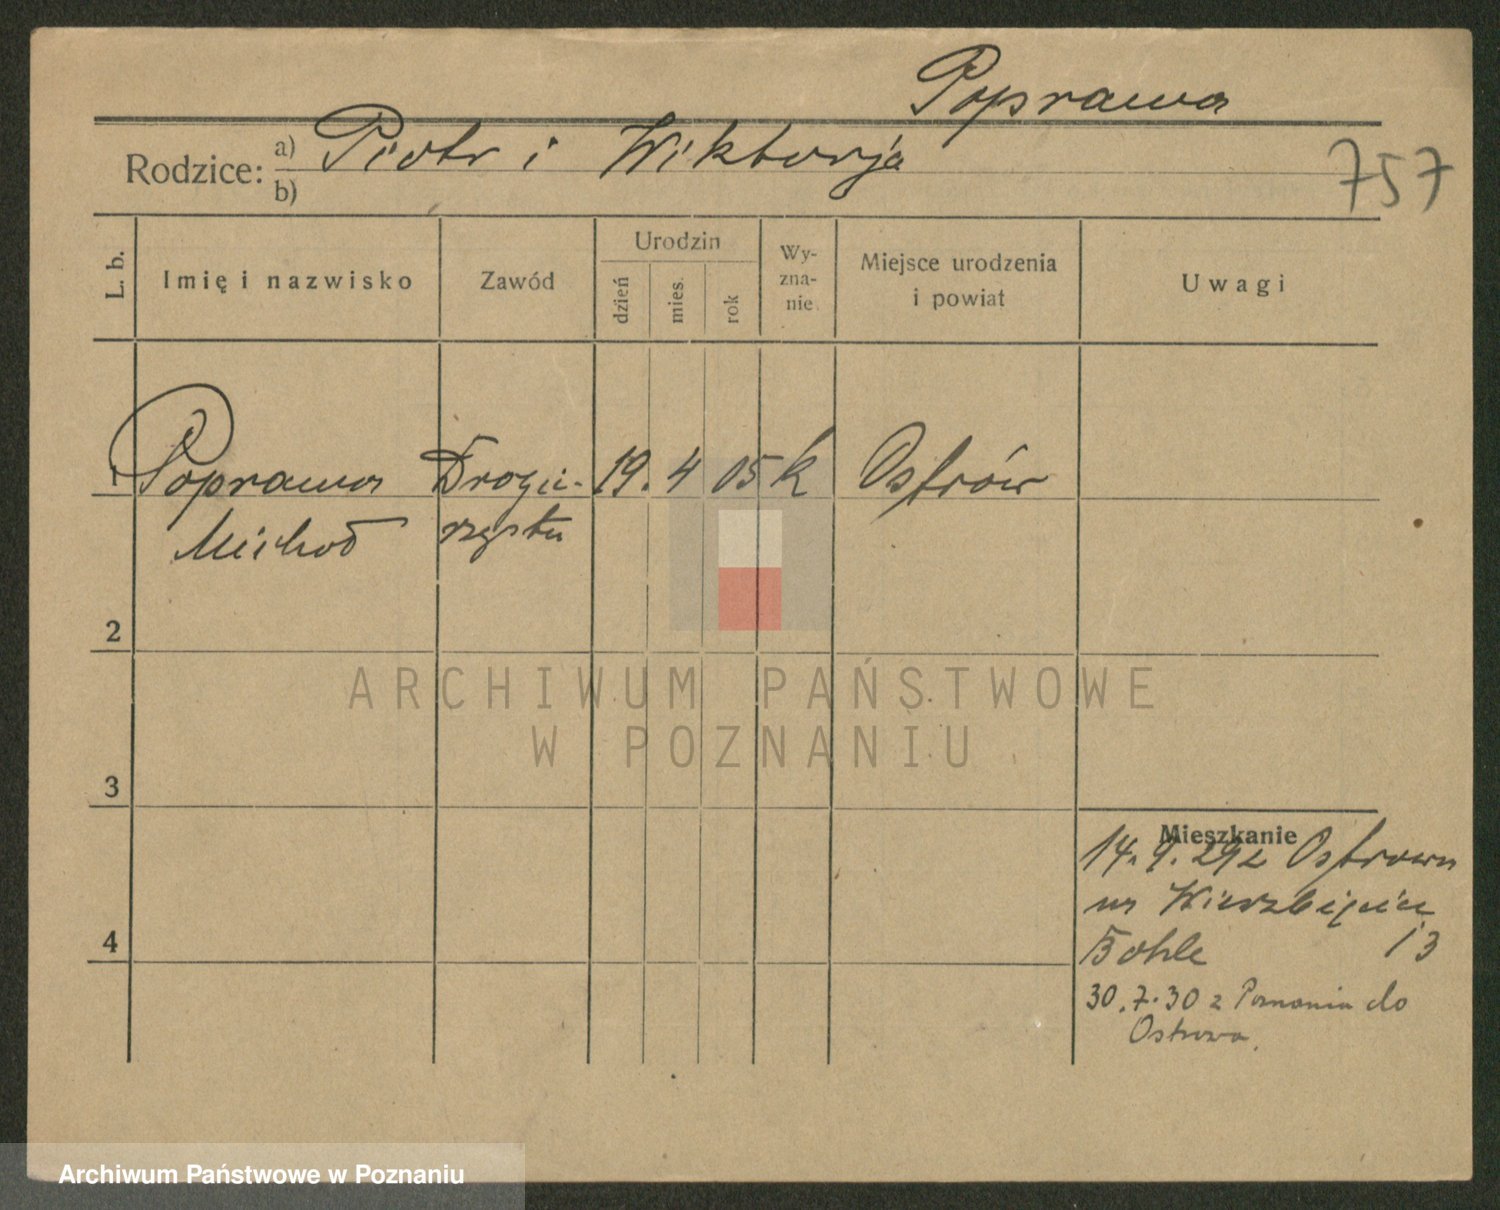 Poprawa
Rodzice: a) Piotr i Wiktorja
b)
757
L. b.
Imię i nazwisko
Zawód
Urodzin
dzień
mies.
rok
Wy-
zna-
nie
Miejsce urodzenia
i powiat
Uwagi
1 Poprawa Drogi- 19. 4 05 k Ostrów
Michał rzysta
2
ARCHIWUM PAŃSTWOWE
W POZNANIU
3
Mieszkanie
14. 9. 29 z Ostrowa
na Wierzbięcice
Bohle 13
4
30. 7. 30 z Poznania do
Ostrowa.
Archiwum Państwowe w Poznaniu